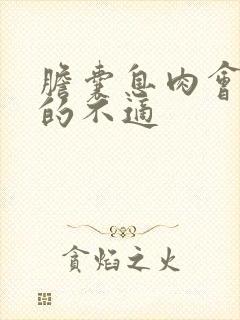 膽囊息肉會
的不適
貪焰之火